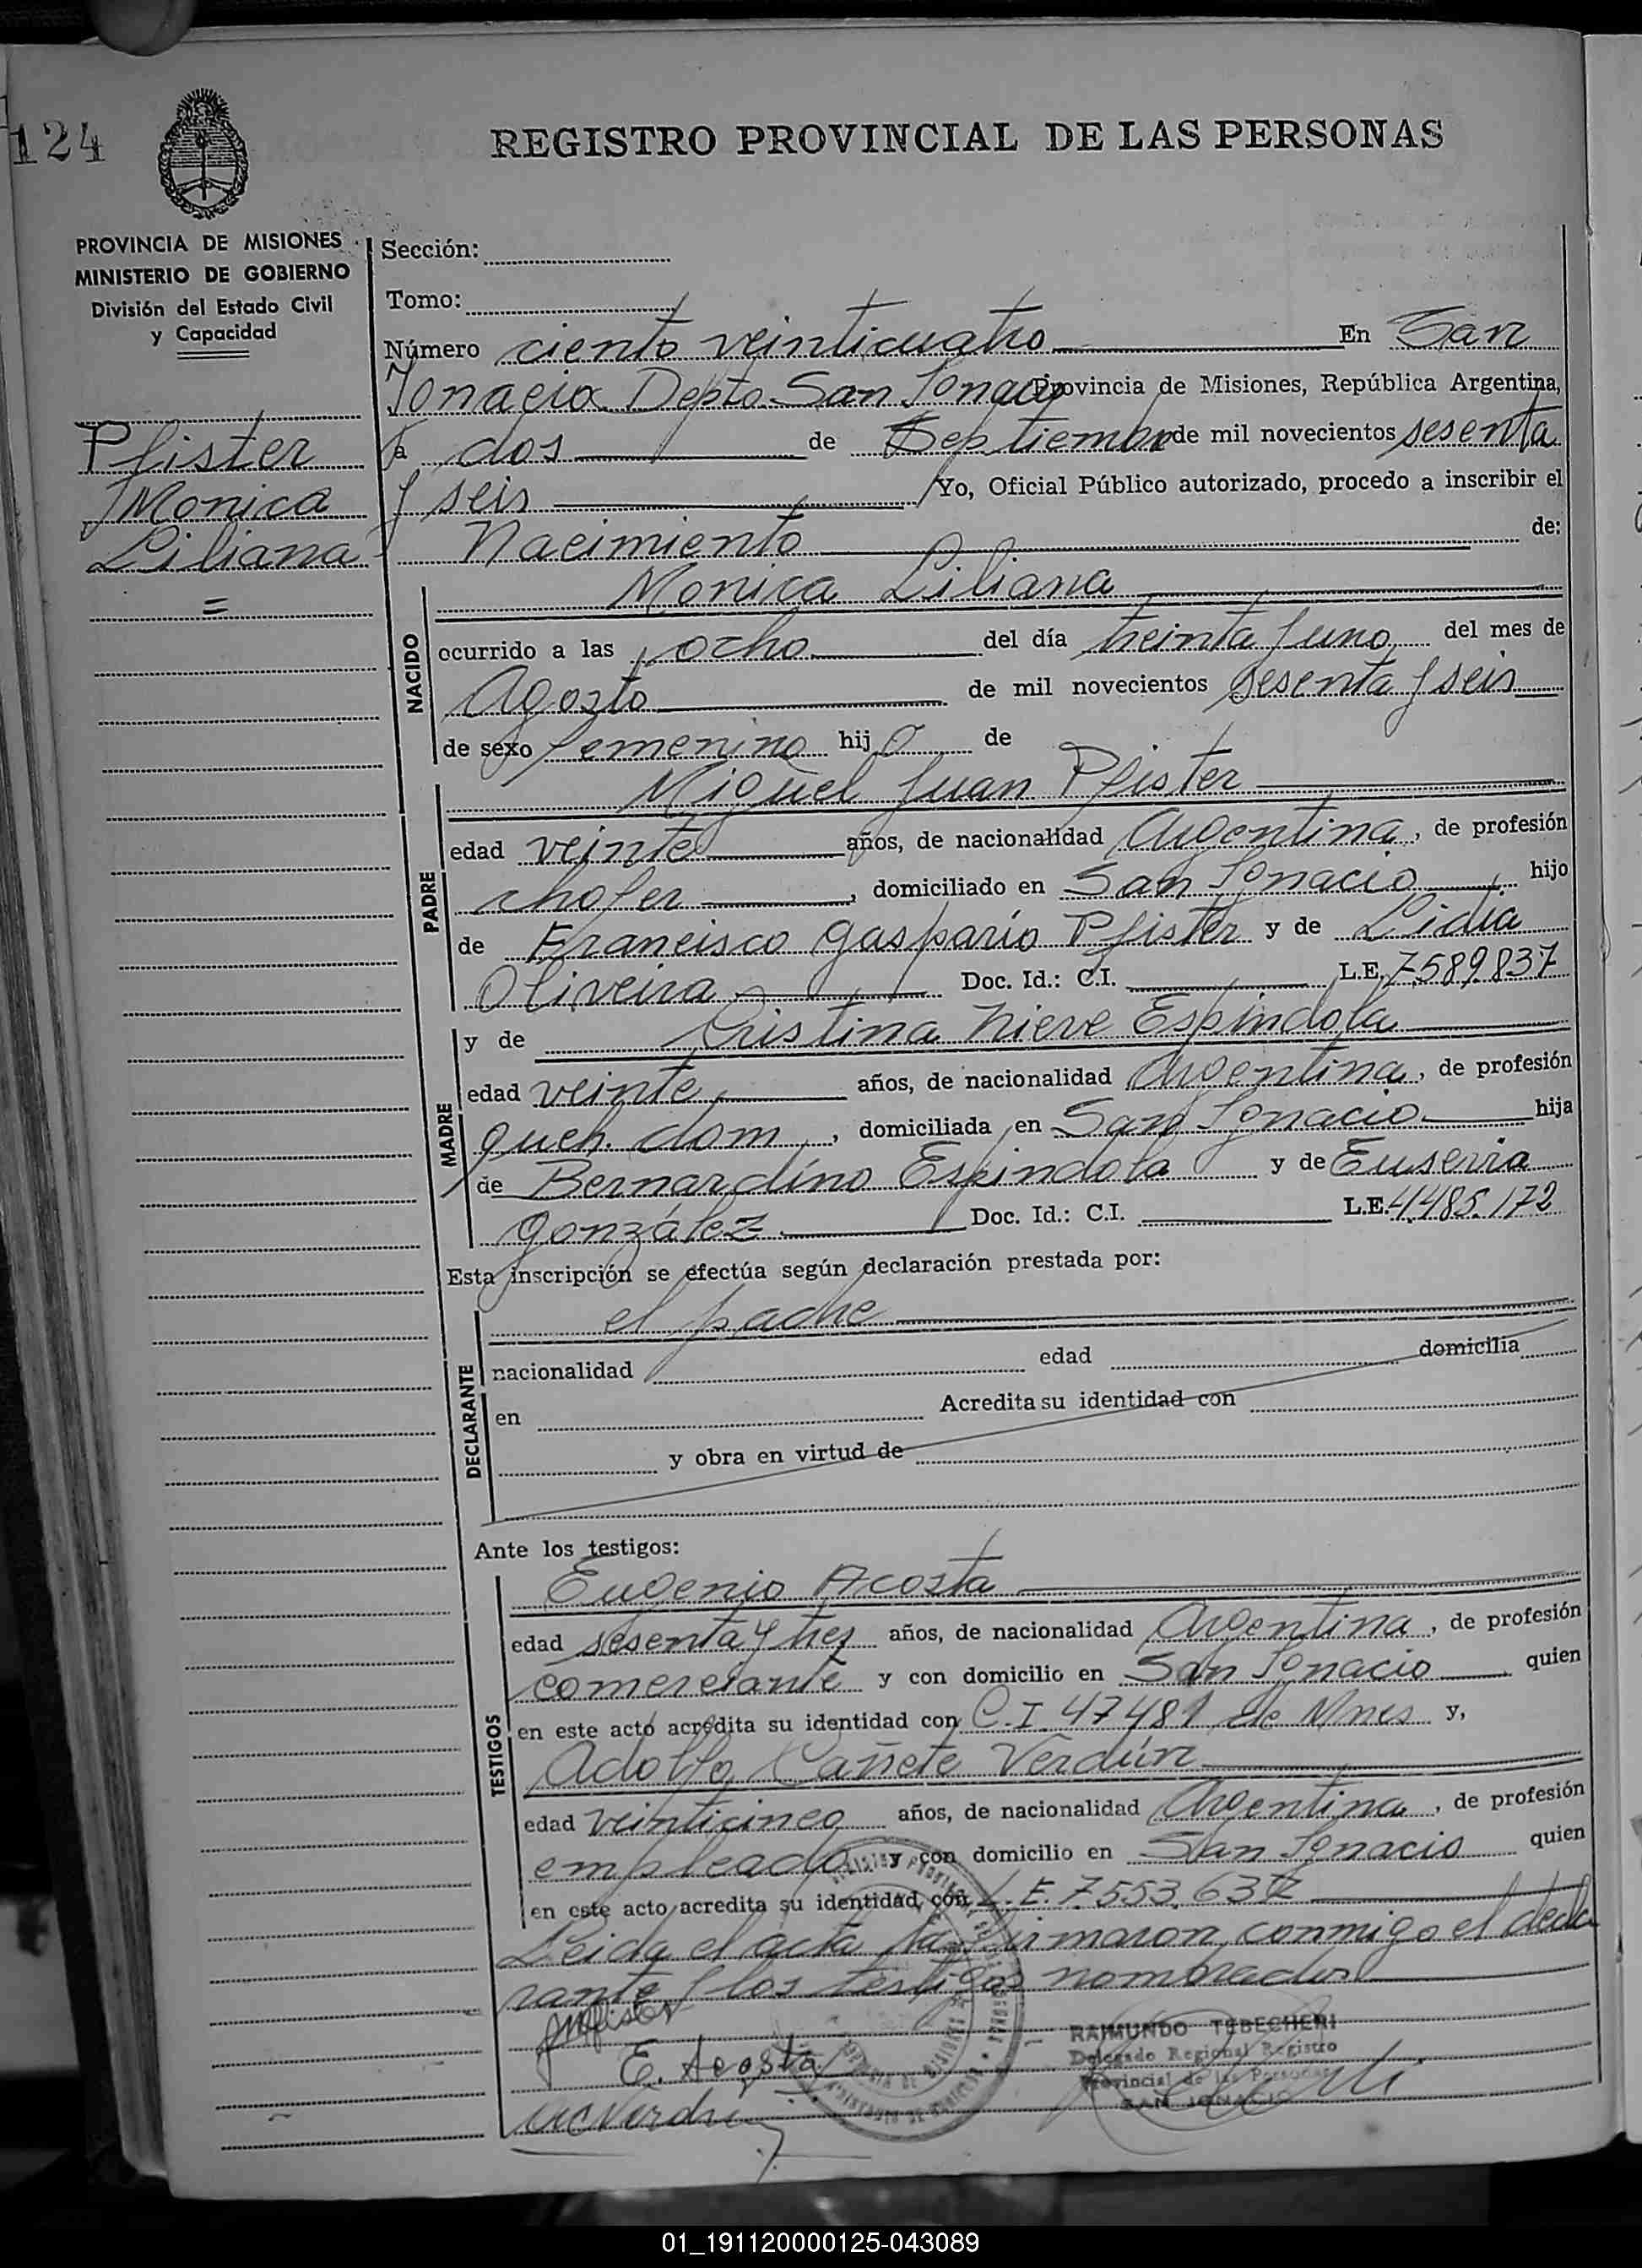 124
REGISTRO PROVINCIAL DE LAS PERSONAS
PROVINCIA DE MISIONES
MINISTERIO DE GOBIERNO
División del Estado Civil
y Capacidad
Pfister
Monica
Liliana
=
Sección:
Tomo:
Número ciento veinticuatro En San
Ignacio Depto. San Ignacio Provincia de Misiones, República Argentina,
a dos de Septiembre de mil novecientos sesenta
y seis Yo, Oficial Público autorizado, procedo a inscribir el
Nacimiento de:
NACIDO
Monica Liliana
ocurrido a las ocho del día treinta y uno del mes de
Agosto de mil novecientos sesenta y seis
de sexo femenino hijo de
PADRE
Miguel Juan Pfister
edad veinte años, de nacionalidad Argentina, de profesión
chofer, domiciliado en San Ignacio hijo
de Francisco Gaspario Pfister y de Lidia
Oliveira Doc. Id.: C.I. L.E. 7.589.837
MADRE
y de Cristina Nieve Espindola
edad veinte años, de nacionalidad Argentina, de profesión
queh. dom, domiciliada en San Ignacio hija
de Bernardino Espindola y de Eusevia
González Doc. Id.: C.I. L.E. 4.485.172
Esta inscripción se efectúa según declaración prestada por:
DECLARANTE
el padre
nacionalidad edad domicilia
en Acredita su identidad con
y obra en virtud de
Ante los testigos:
TESTIGOS
Eugenio Acosta
edad sesenta y tres años, de nacionalidad Argentina, de profesión
comerciante y con domicilio en San Ignacio quien
en este acto acredita su identidad con C.I. 47481 de Mnes y,
Adolfo Cañete Verdún
edad veinticinco años, de nacionalidad Argentina, de profesión
empleado y con domicilio en San Ignacio quien
en este acto acredita su identidad con L.E. 7.553.637
Leida el acta la firmaron conmigo el decla
rante y los testigos nombrados
E. Acosta
RAIMUNDO TEBECHERI
Delegado Regional Registro
Provincial de las Personas
SAN IGNACIO
01_191120000125-043089